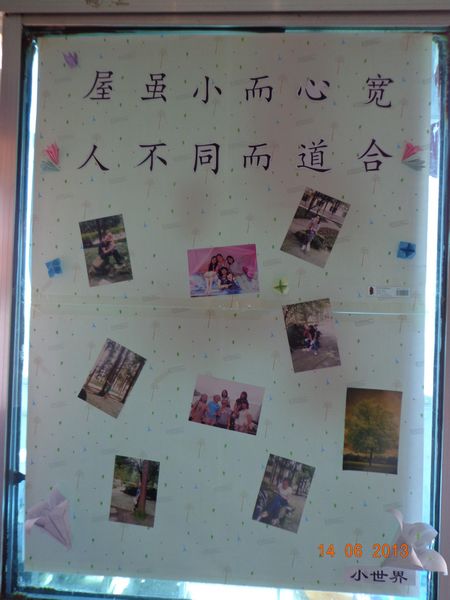 屋虽小而心宽
人不同而道合
14 06 2013
小世界